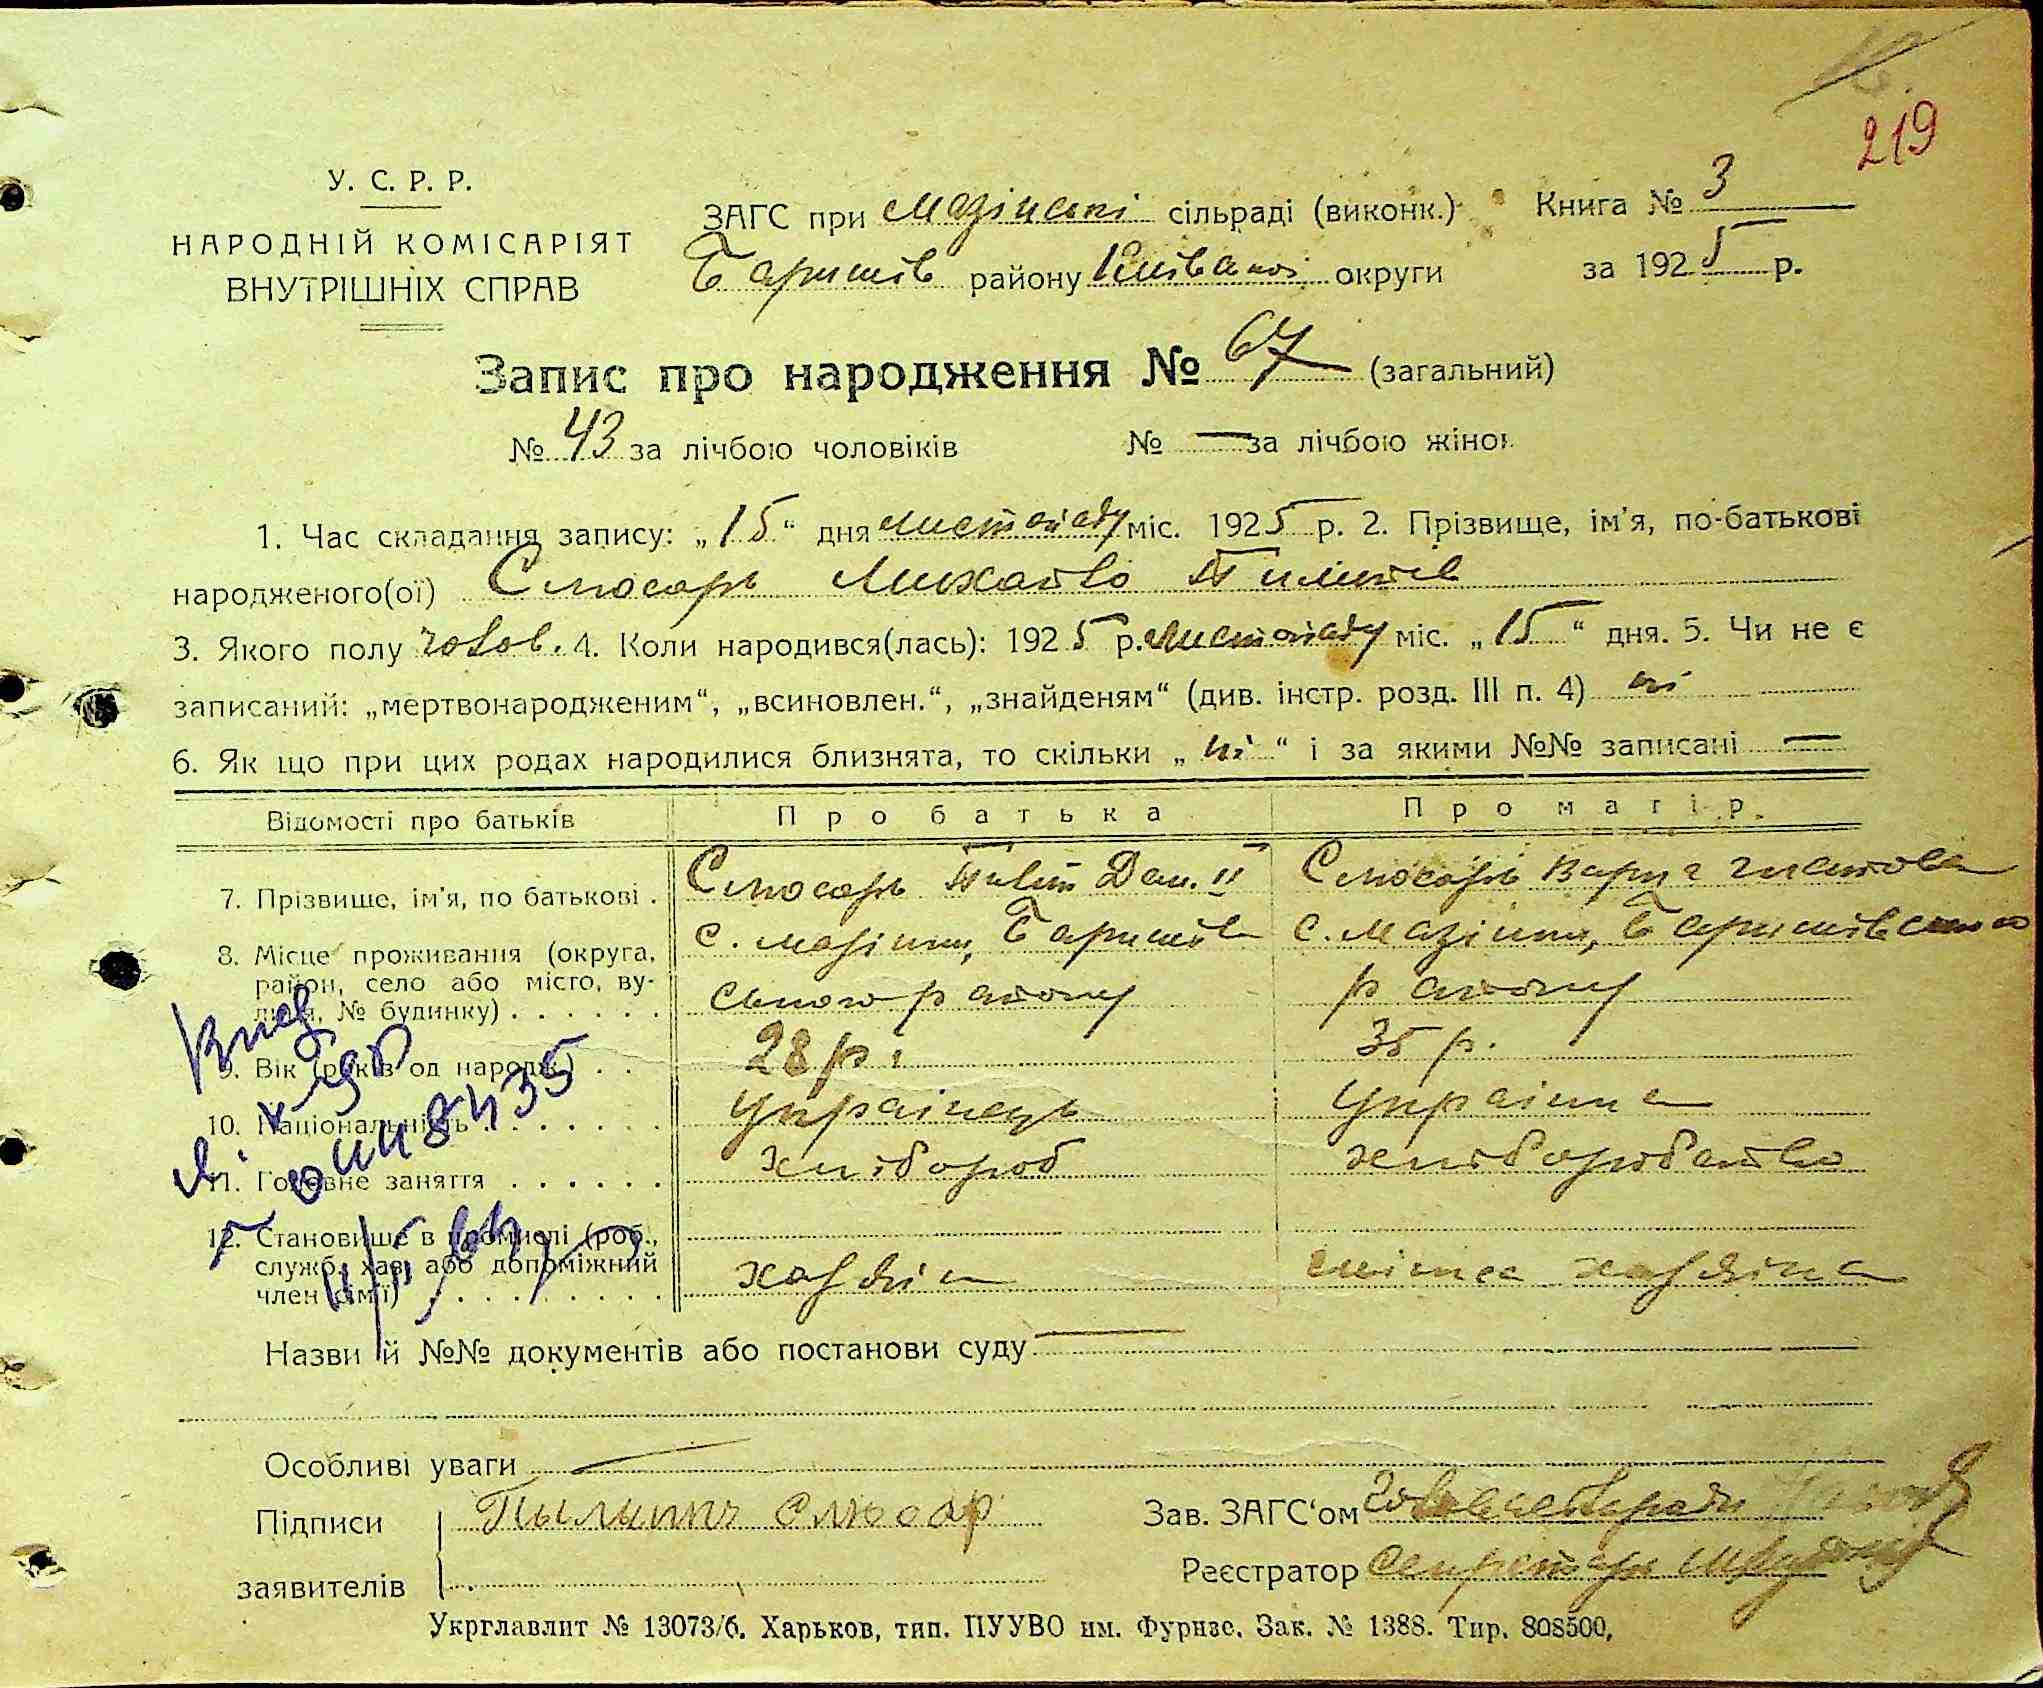 219
У. С. Р. Р.
НАРОДНІЙ КОМІСАРІЯТ
ВНУТРІШНІХ СПРАВ
ЗАГС при Мазінські сільраді (виконк.) Книга № 3
Баришів району Київської округи за 1925 р.
Запис про народження № 67 (загальний)
№ 43 за лічбою чоловіків № — за лічбою жінок
1. Час складання запису: „15“ дня листопаду міс. 1925 р. 2. Прізвище, ім'я, по-батькові
народженого(ої) Слюсарь Михайло Пилипів
3. Якого полу чолов. 4. Коли народився(лась): 1925 р. листопаду міс. „15“ дня. 5. Чи не є
записаний: „мертвонародженим“, „всиновлен.“, „знайденям“ (див. інстр. розд. III п. 4) ні
6. Як що при цих родах народилися близнята, то скільки „ні“ і за якими №№ записані —
Відомості про батьків Про батька Про матір.
7. Прізвище, ім'я, по батькові . Слюсарь Пилип Дем. II Слюсарь
8. Місце проживання (округа, с. Мазінки, Баришів с. Мазінки, Баришівського
район, село або місто, ву- ського району району
лиця, № будинку) . . . . . .
9. Вік (років од народж.) . . 28 р. 35 р.
10. Національність . . . . . . . українець українка
11. Головне заняття . . . . . . хлібороб хліборобство
12. Становище в промислі (роб.,
служб. хаз. або допоміжний хазяїн жінка хазяїна
член сім'ї) . . . . . . . . .
Назви й №№ документів або постанови суду —
Особливі уваги —
Підписи Пылыпъ Слюсар Зав. ЗАГС'ом
заявителів Реєстратор Секретарь
Укрглавлит № 13073/б. Харьков, тип. ПУУВО им. Фурнзе. Зак. № 1388. Тир. 808500.